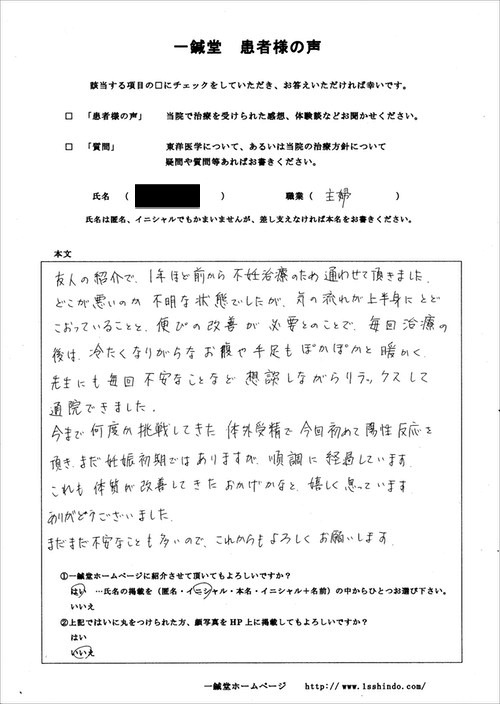 一鍼堂 患者様の声
該当する項目の□にチェックをしていただき、お答えいただければ幸いです。
□ 「患者様の声」 当院で治療を受けられた感想、体験談などお聞かせください。
□ 「質問」 東洋医学について、あるいは当院の治療方針について
疑問や質問等あればお書きください。
氏名 ( ) 職業 ( 主婦 )
氏名は匿名、イニシャルでもかまいませんが、差し支えなければ本名をお書きください。
本文
友人の紹介で、1年ほど前から不妊治療のため通わせて頂きました。
どこが悪いのか不明な状態でしたが、気の流れが上半身にとど
こおっていることと、便びの改善が必要とのことで、毎回治療の
後は、冷たくなりがちなお腹や手足もぽかぽかと暖かく、
先生にも毎回不安なことなど想談しながらリラックスして
通院できました。
今まで何度か挑戦してきた体外受精で今回初めて陽性反応を
頂き、まだ妊娠初期ではありますが、順調に経過しています。
これも体質が改善してきたおかげかなと、嬉しく思っています。
ありがとうございました。
まだまだ不安なことも多いので、これからもよろしくお願いします。
①一鍼堂ホームページに紹介させて頂いてもよろしいですか？
はい …氏名の掲載を（匿名・イニシャル・本名・イニシャル＋名前）の中からひとつお選び下さい。
いいえ
②上記ではいに丸をつけられた方、顔写真をHP上に掲載してもよろしいですか？
はい
いいえ
一鍼堂ホームページ http://www.1sshindo.com/